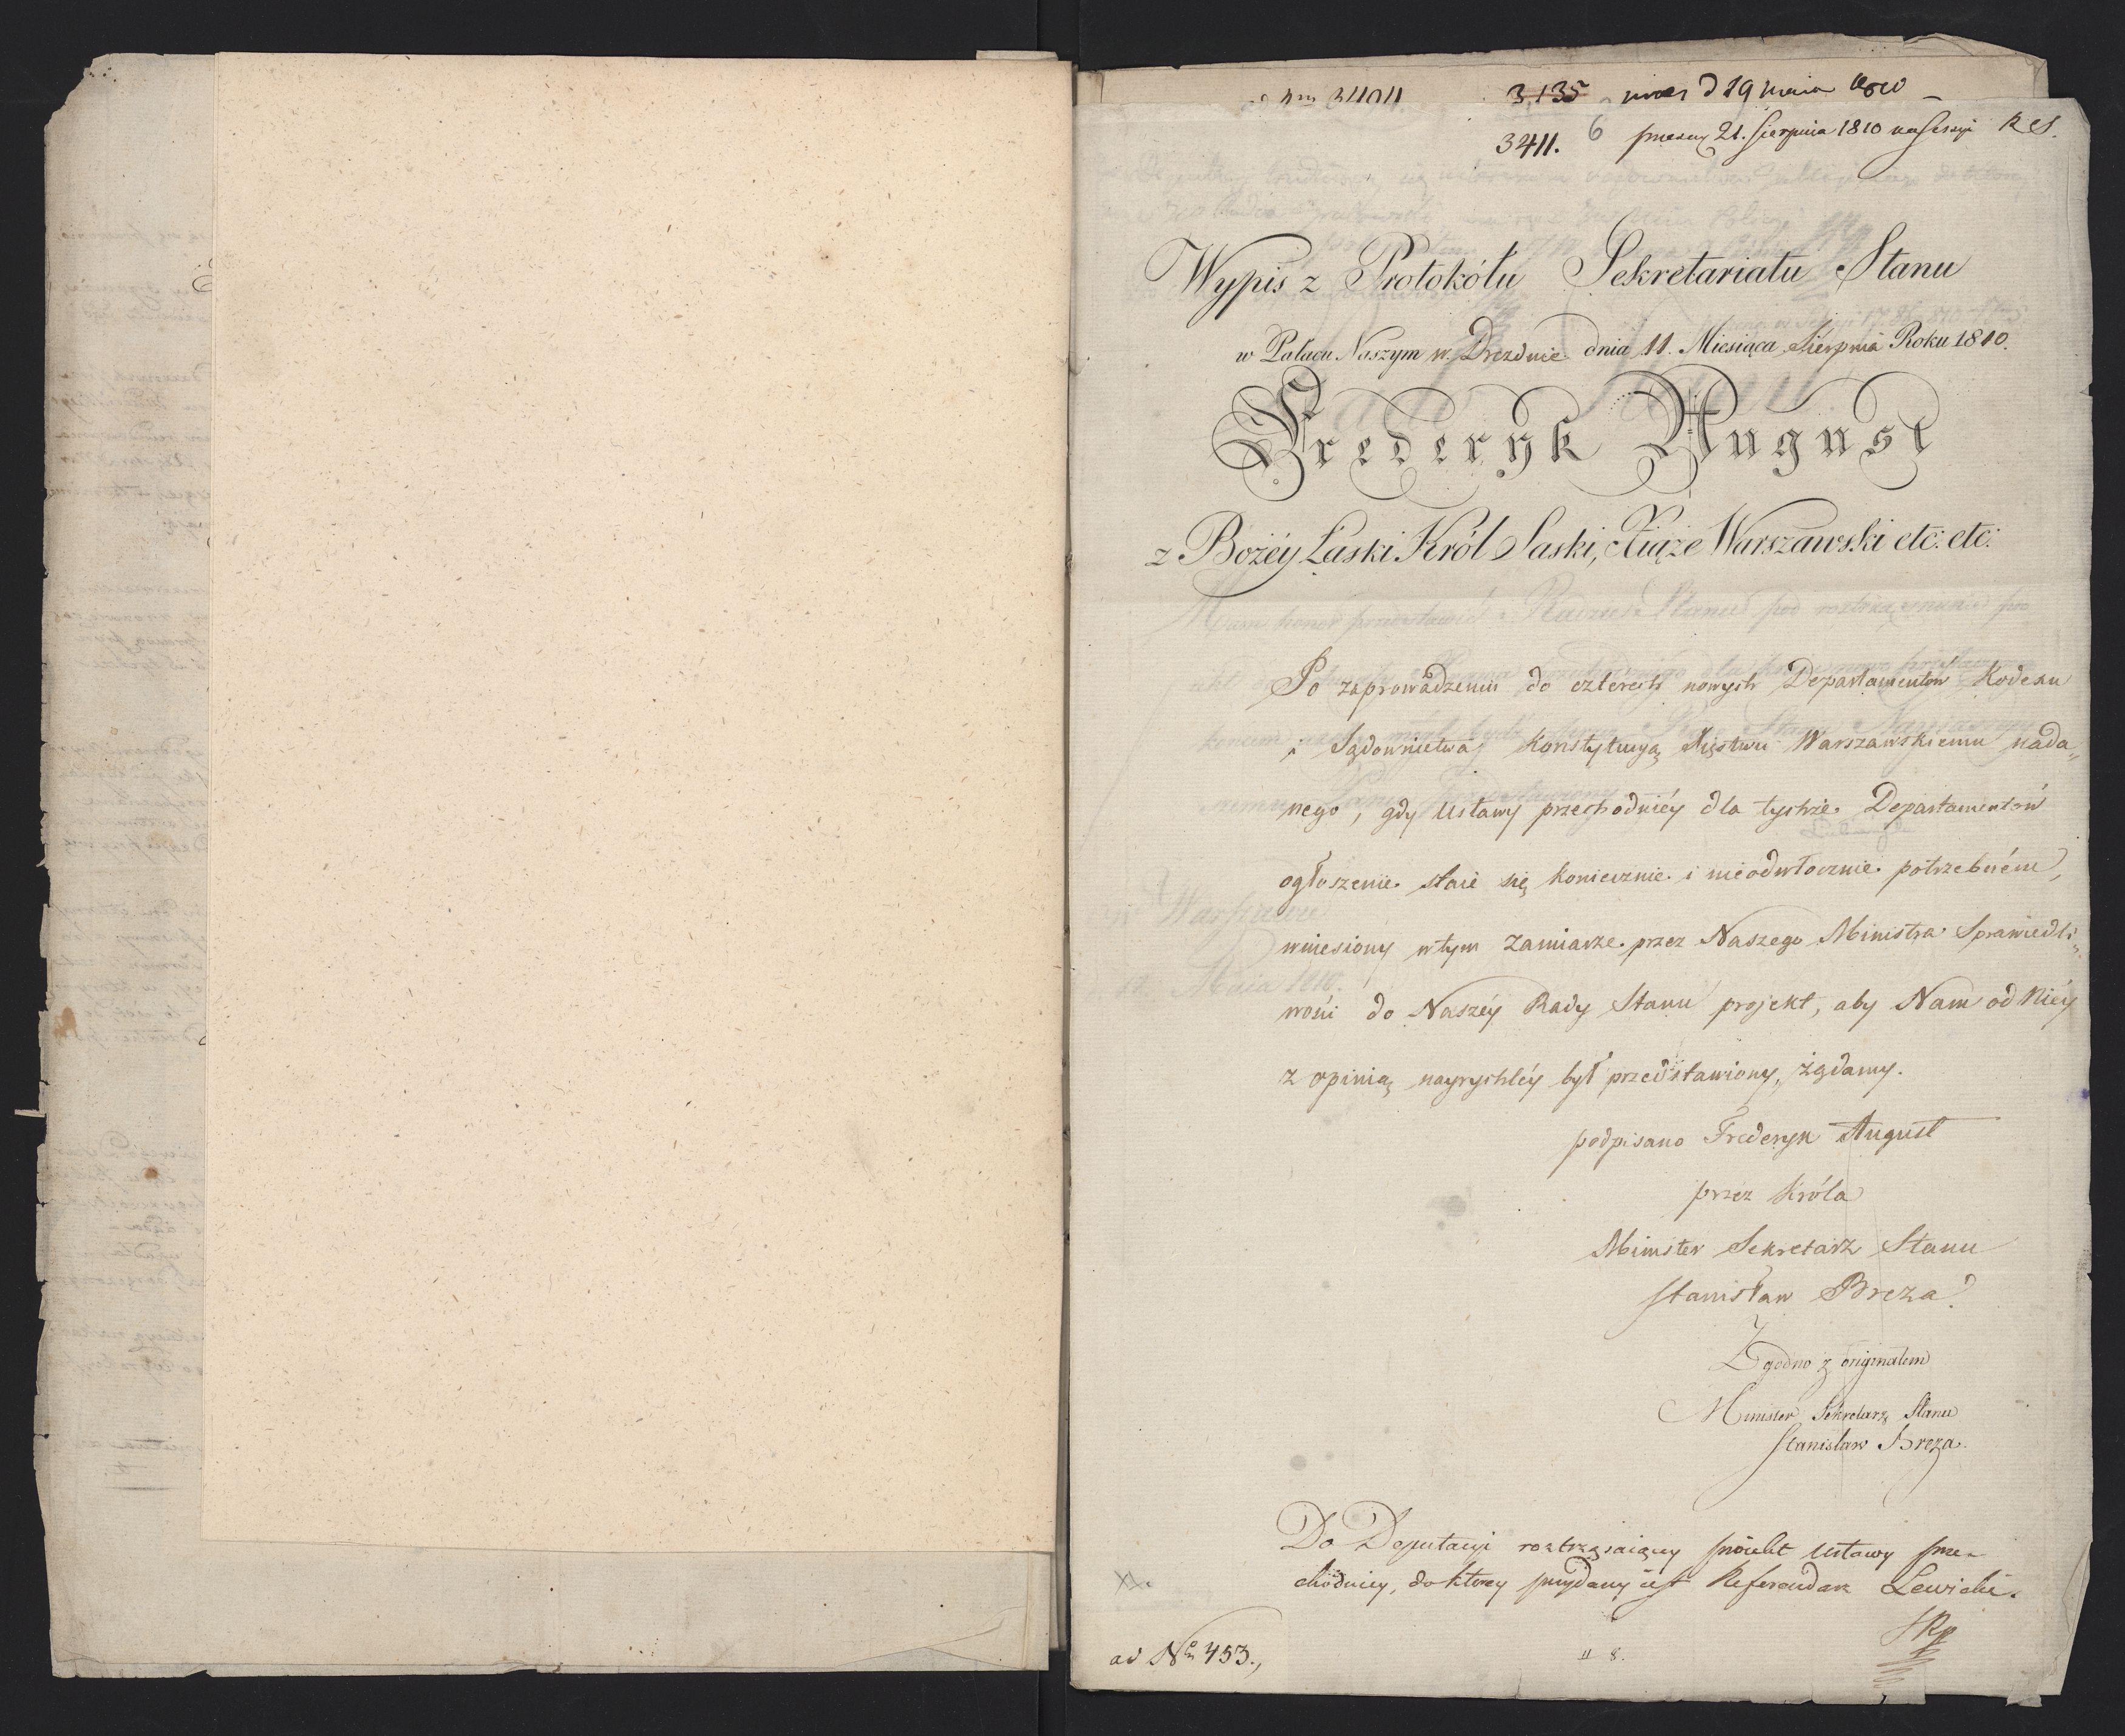 3135 d 19 maia 1810
3411. 6 praes. 21. Sierpnia 1810 na Sessyi RS.
Wypis z Protokółu Sekretariatu Stanu
w Pałacu Naszym w Dreznie dnia 11. Miesiąca Sierpnia Roku 1810.
Frederyk August
z Bożéy Łaski Król Saski, Xiąże Warszawski etc: etc:
Po zaprowadzeniu do czterech nowych Departamentów Kodexu
i Sądownictwa Konstytucyą Xięstwu Warszawskiemu nada„
nego, gdy Ustawy przechodniéy dla tychże Departamentów
ogłoszenie staie się koniecznie i nieodwłocznie potrzebném,
wniesiony w tym zamiarze przez Naszego Ministra Sprawiedli„
wości do Naszéy Rady Stanu projekt, aby Nam od Niéy
z opinią nayrychléy był przedstawiony, żądamy.
podpisano Frederyk August
przez Króla
Minister Sekretarz Stanu
Stanisław Breza
Zgodno z originałem
Minister Sekretarz Stanu
Stanisław Breza.
Do Deputacyi roztrząsaiącey proiekt Ustawy prze-
chodniey, do ktorey przydany iest Referendarz Lewicki.
ad Nr 453.,
8.